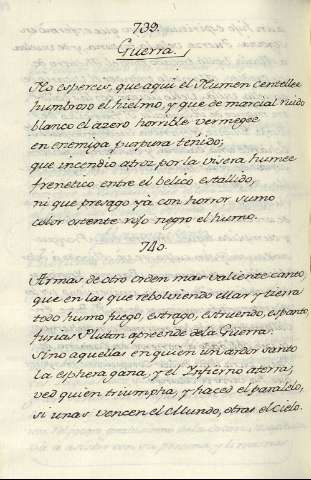 739.
Guerra.
No espereis, que aqui el Numen centellee
humbroso el hielmo, y que de marcial ruido
blanco el azero horrible vermegee
en enemiga purpura teñido;
que incendio atroz por la visera humee
frenetico entre el belico estallido,
ni que presago yà con horror sumo
color ostente rojo negro el humo.
740.
Armas de otro orden mas valiente canto,
que en las que rebolviendo el mar y tierra
todo humo fuego, estrago, estruendo, espanto,
furias Pluton aprende de la Guerra.
Sino aquellas en quien un ardor santo
la esphera gana, y el Infierno aterra;
ved quien triumpha, y haced el paralelo,
si unas vencen el Mundo, otras el Cielo.